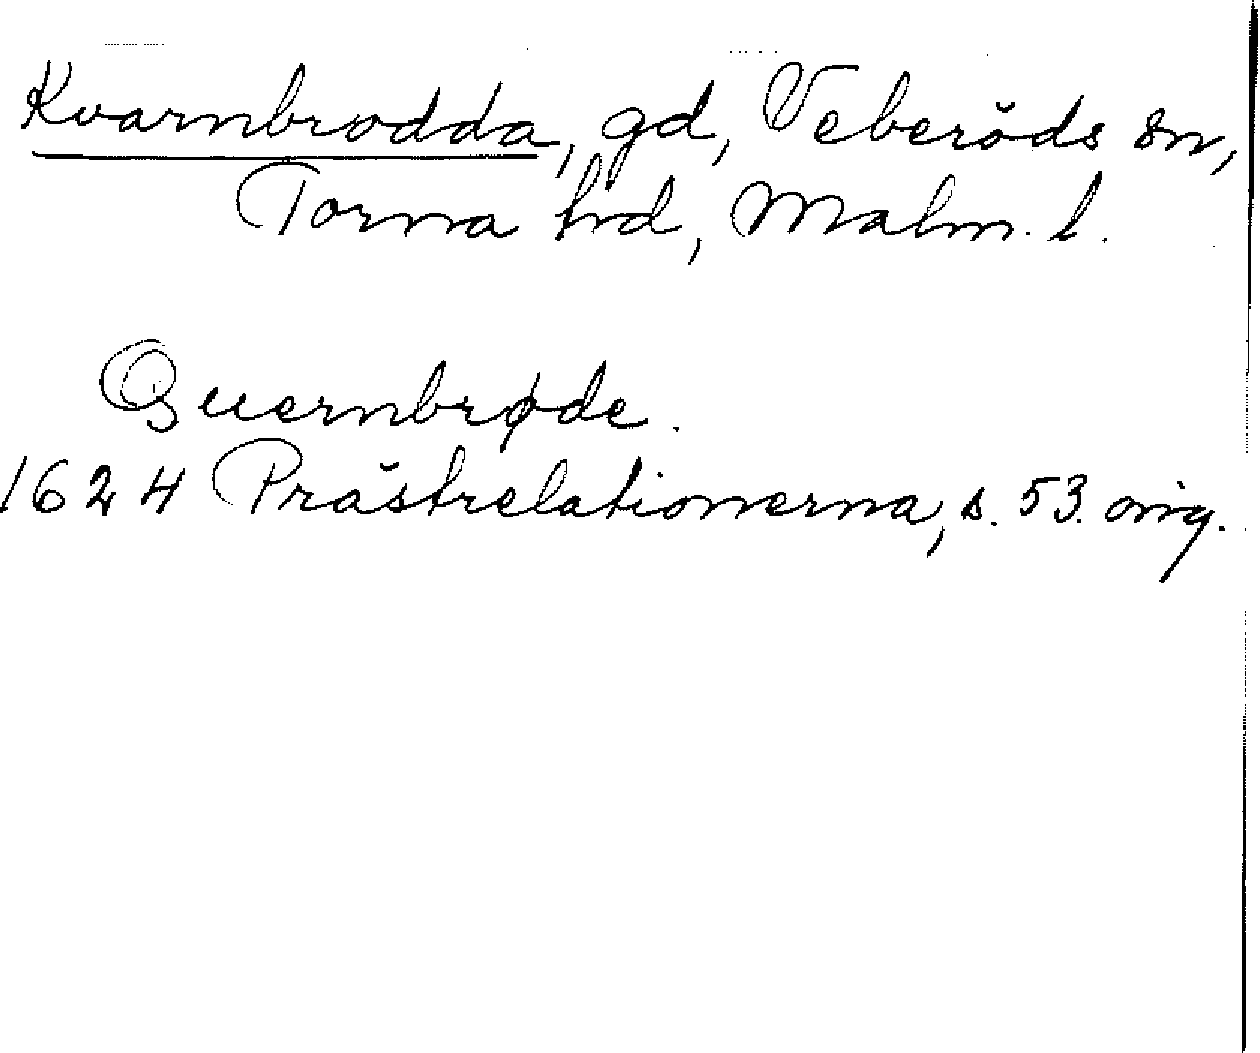 Kvarnbrodda, gd, Veberöds sn,
Torna hd, Malm. l.
Quernbrøde.
1624 Prästrelationerna, s. 53. orig.